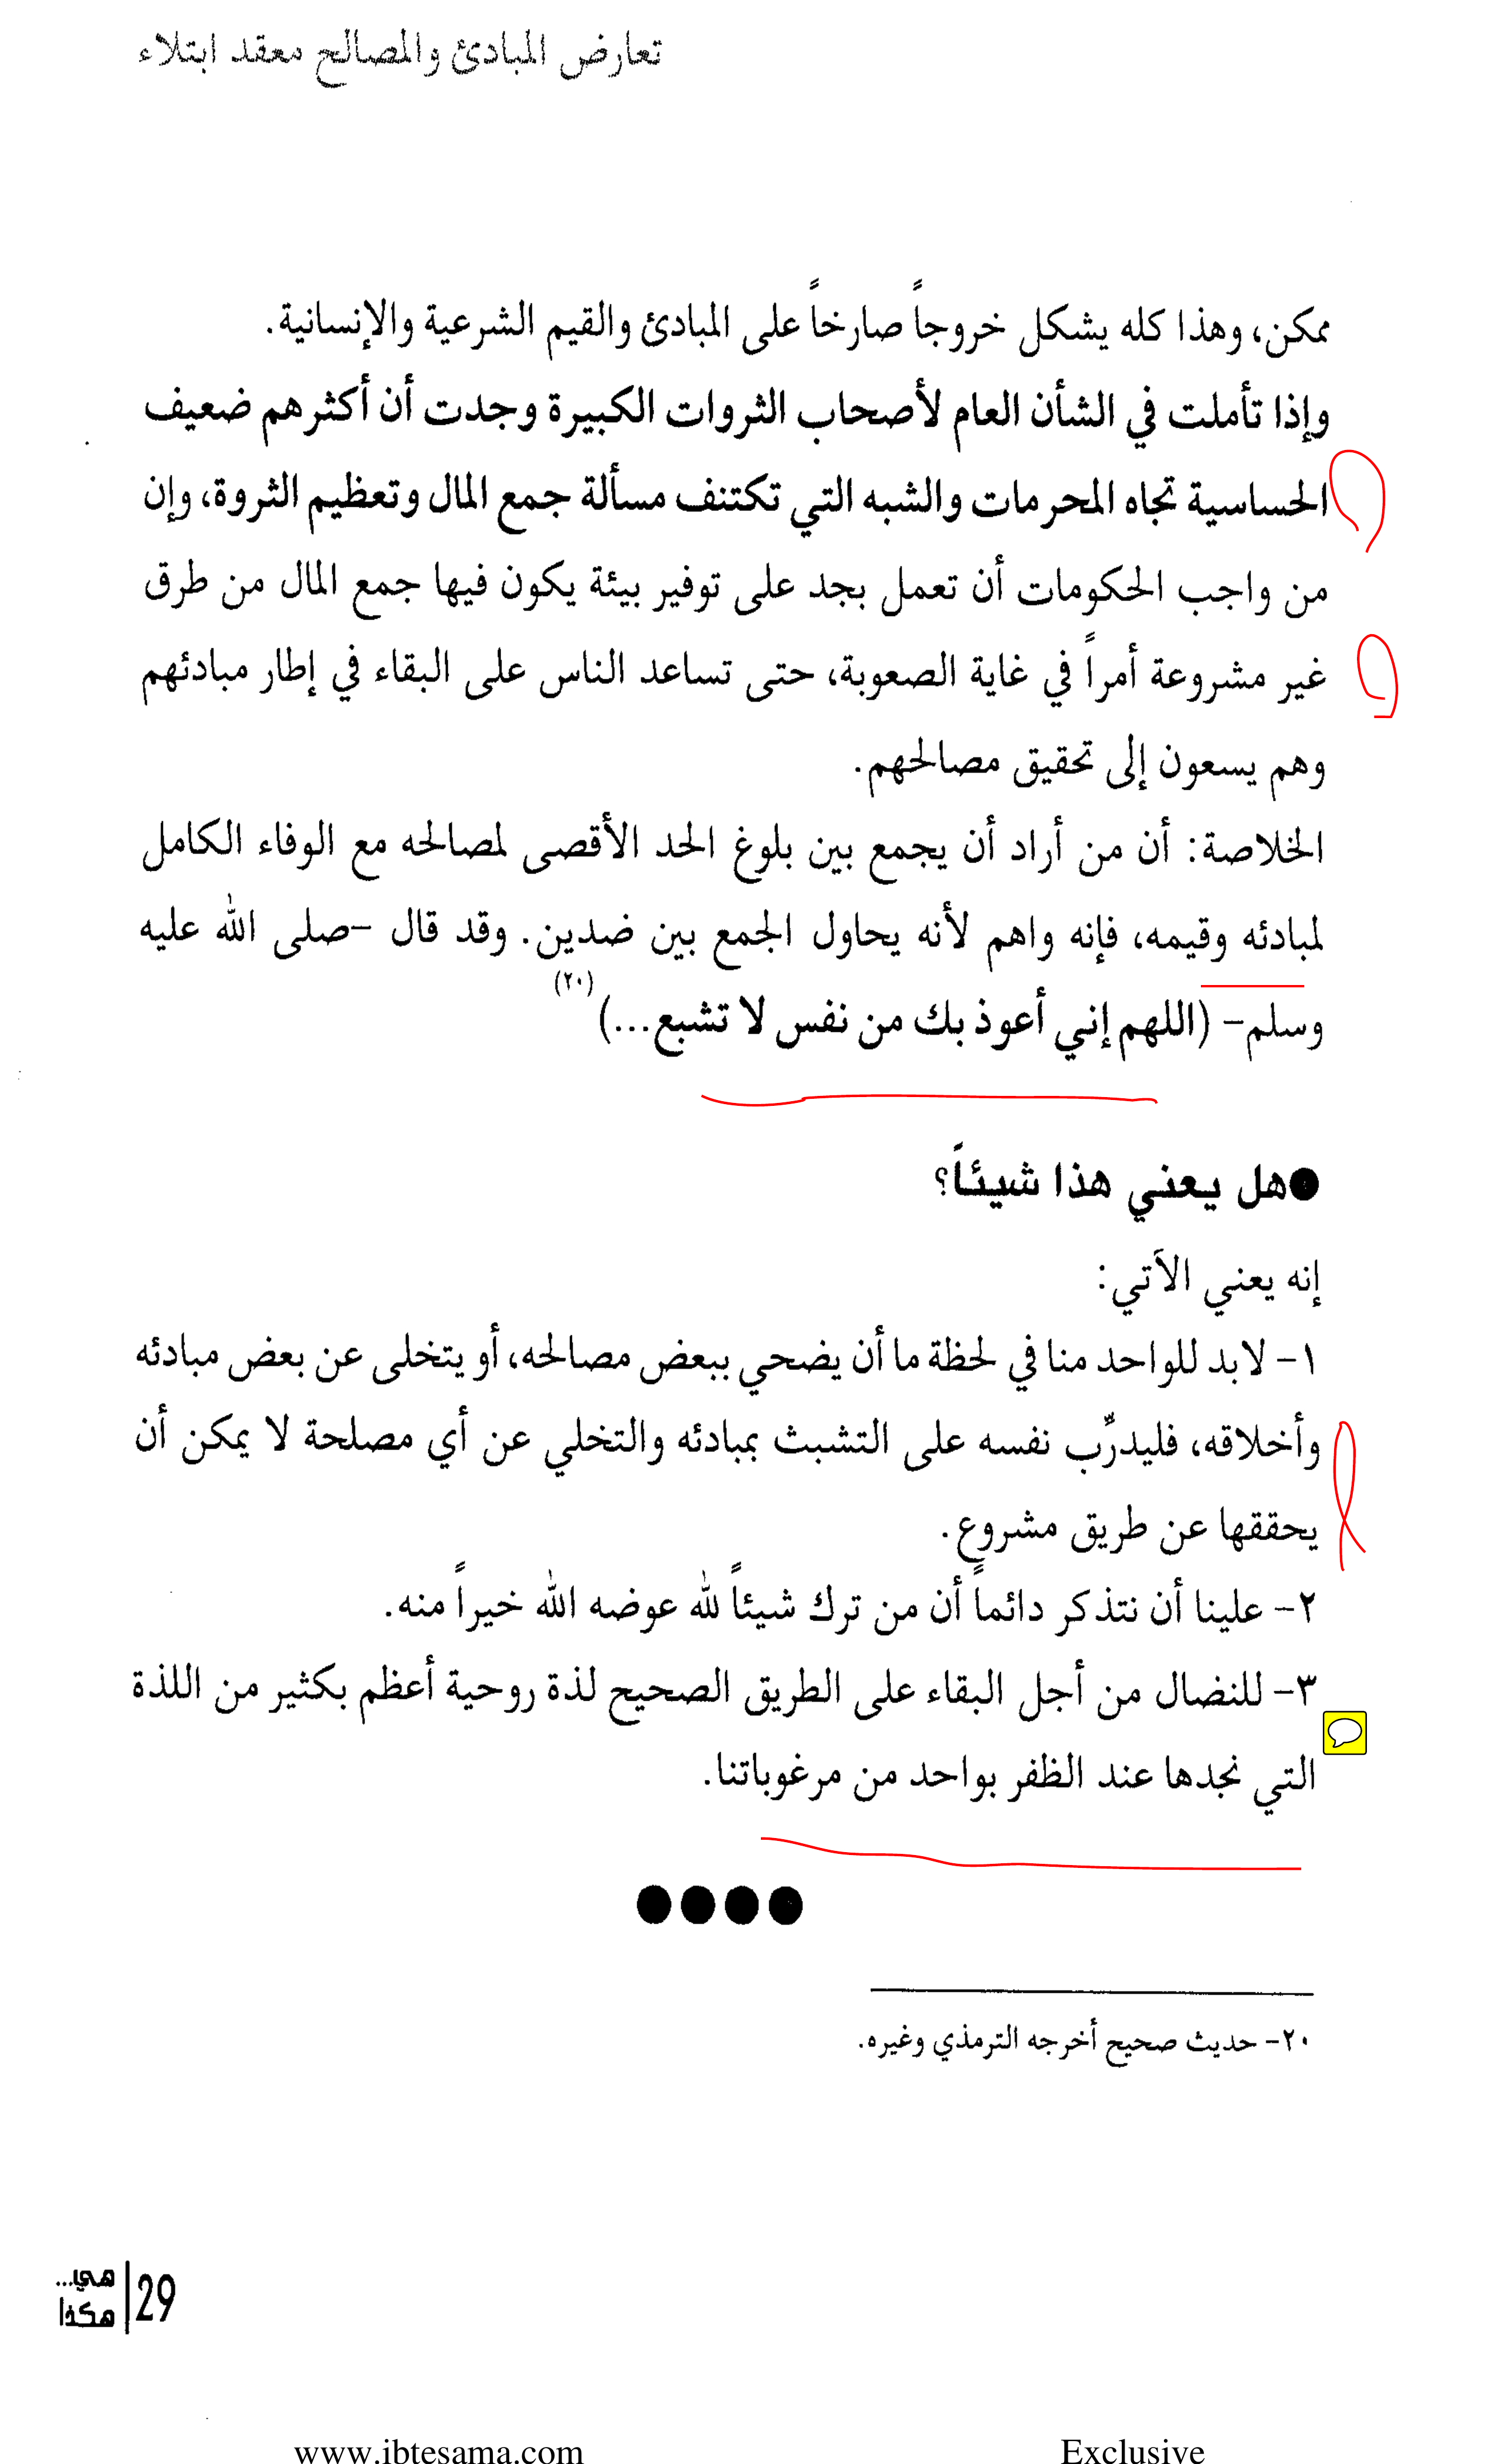 تعارض المبادئ والمصالح معقد ابتلاء
ممكن، وهذا كله يشكل خروجاً صارخاً على المبادئ والقيم الشرعية والإنسانية.
وإذا تأملت في الشأن العام لأصحاب الثروات الكبيرة وجدت أن أكثرهم ضعيف
الحساسية تجاه المحرمات والشبه التي تكتنف مسألة جمع المال وتعظيم الثروة، وإن
من واجب الحكومات أن تعمل بجد على توفير بيئة يكون فيها جمع المال من طرق
غير مشروعة أمراً في غاية الصعوبة، حتى تساعد الناس على البقاء في إطار مبادئهم
وهم يسعون إلى تحقيق مصالحهم.
الخلاصة: أن من أراد أن يجمع بين بلوغ الحد الأقصى لمصالحه مع الوفاء الكامل
لمبادئه وقيمه، فإنه واهم لأنه يحاول الجمع بين ضدين. وقد قال -صلى الله عليه
وسلم- (اللهم إني أعوذ بك من نفس لا تشبع...)(٢٠)
●هل يعني هذا شيئاً؟
إنه يعني الآتي:
١- لابد للواحد منا في لحظة ما أن يضحي ببعض مصالحه، أو يتخلى عن بعض مبادئه
وأخلاقه، فليدرِّب نفسه على التشبث بمبادئه والتخلي عن أي مصلحة لا يمكن أن
يحققها عن طريق مشروع.
٢- علينا أن نتذكر دائماً أن من ترك شيئاً لله عوضه الله خيراً منه.
٣- للنضال من أجل البقاء على الطريق الصحيح لذة روحية أعظم بكثير من اللذة
التي نجدها عند الظفر بواحد من مرغوباتنا.
●●●●
٢٠- حديث صحيح أخرجه الترمذي وغيره.
29 هي...
هكذا
www.ibtesama.com Exclusive